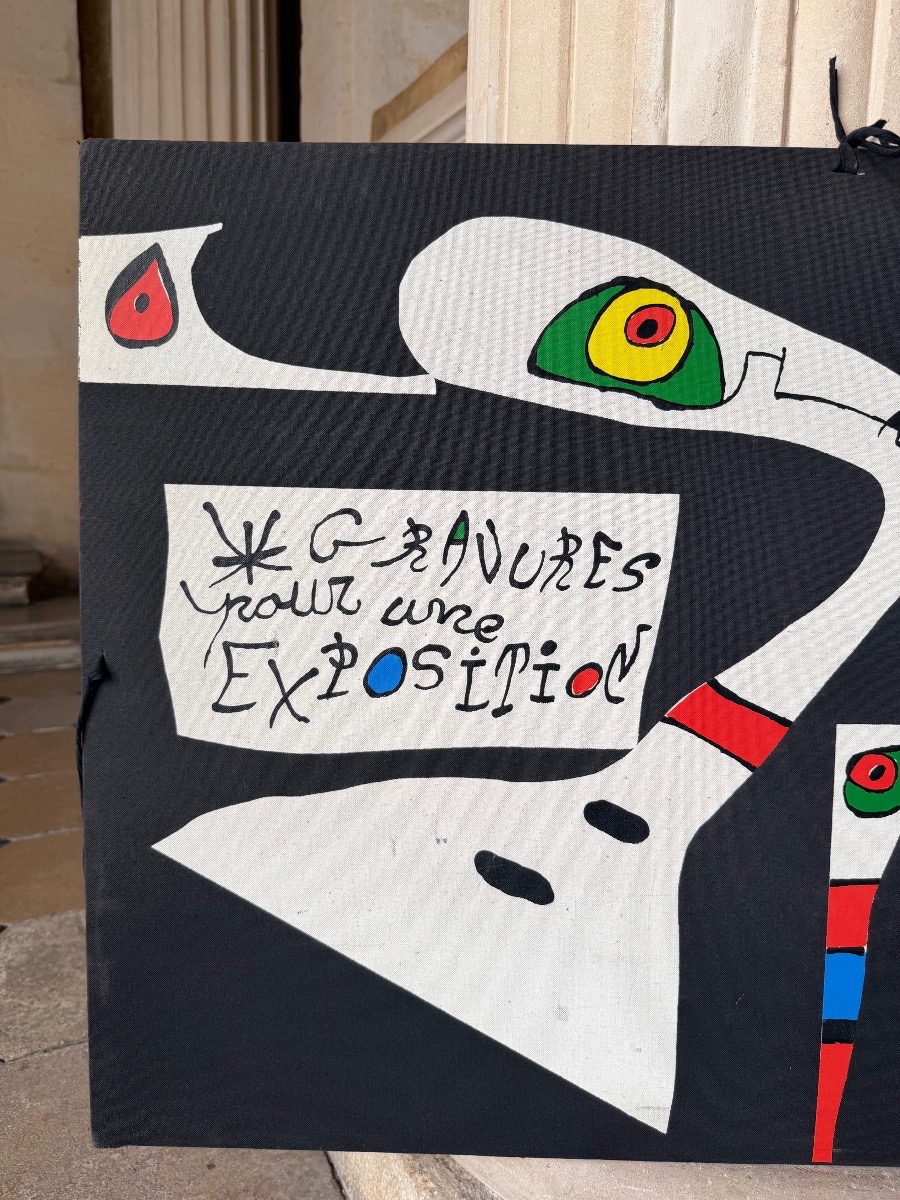 * GRAVURES
pour une
EXPOSITION